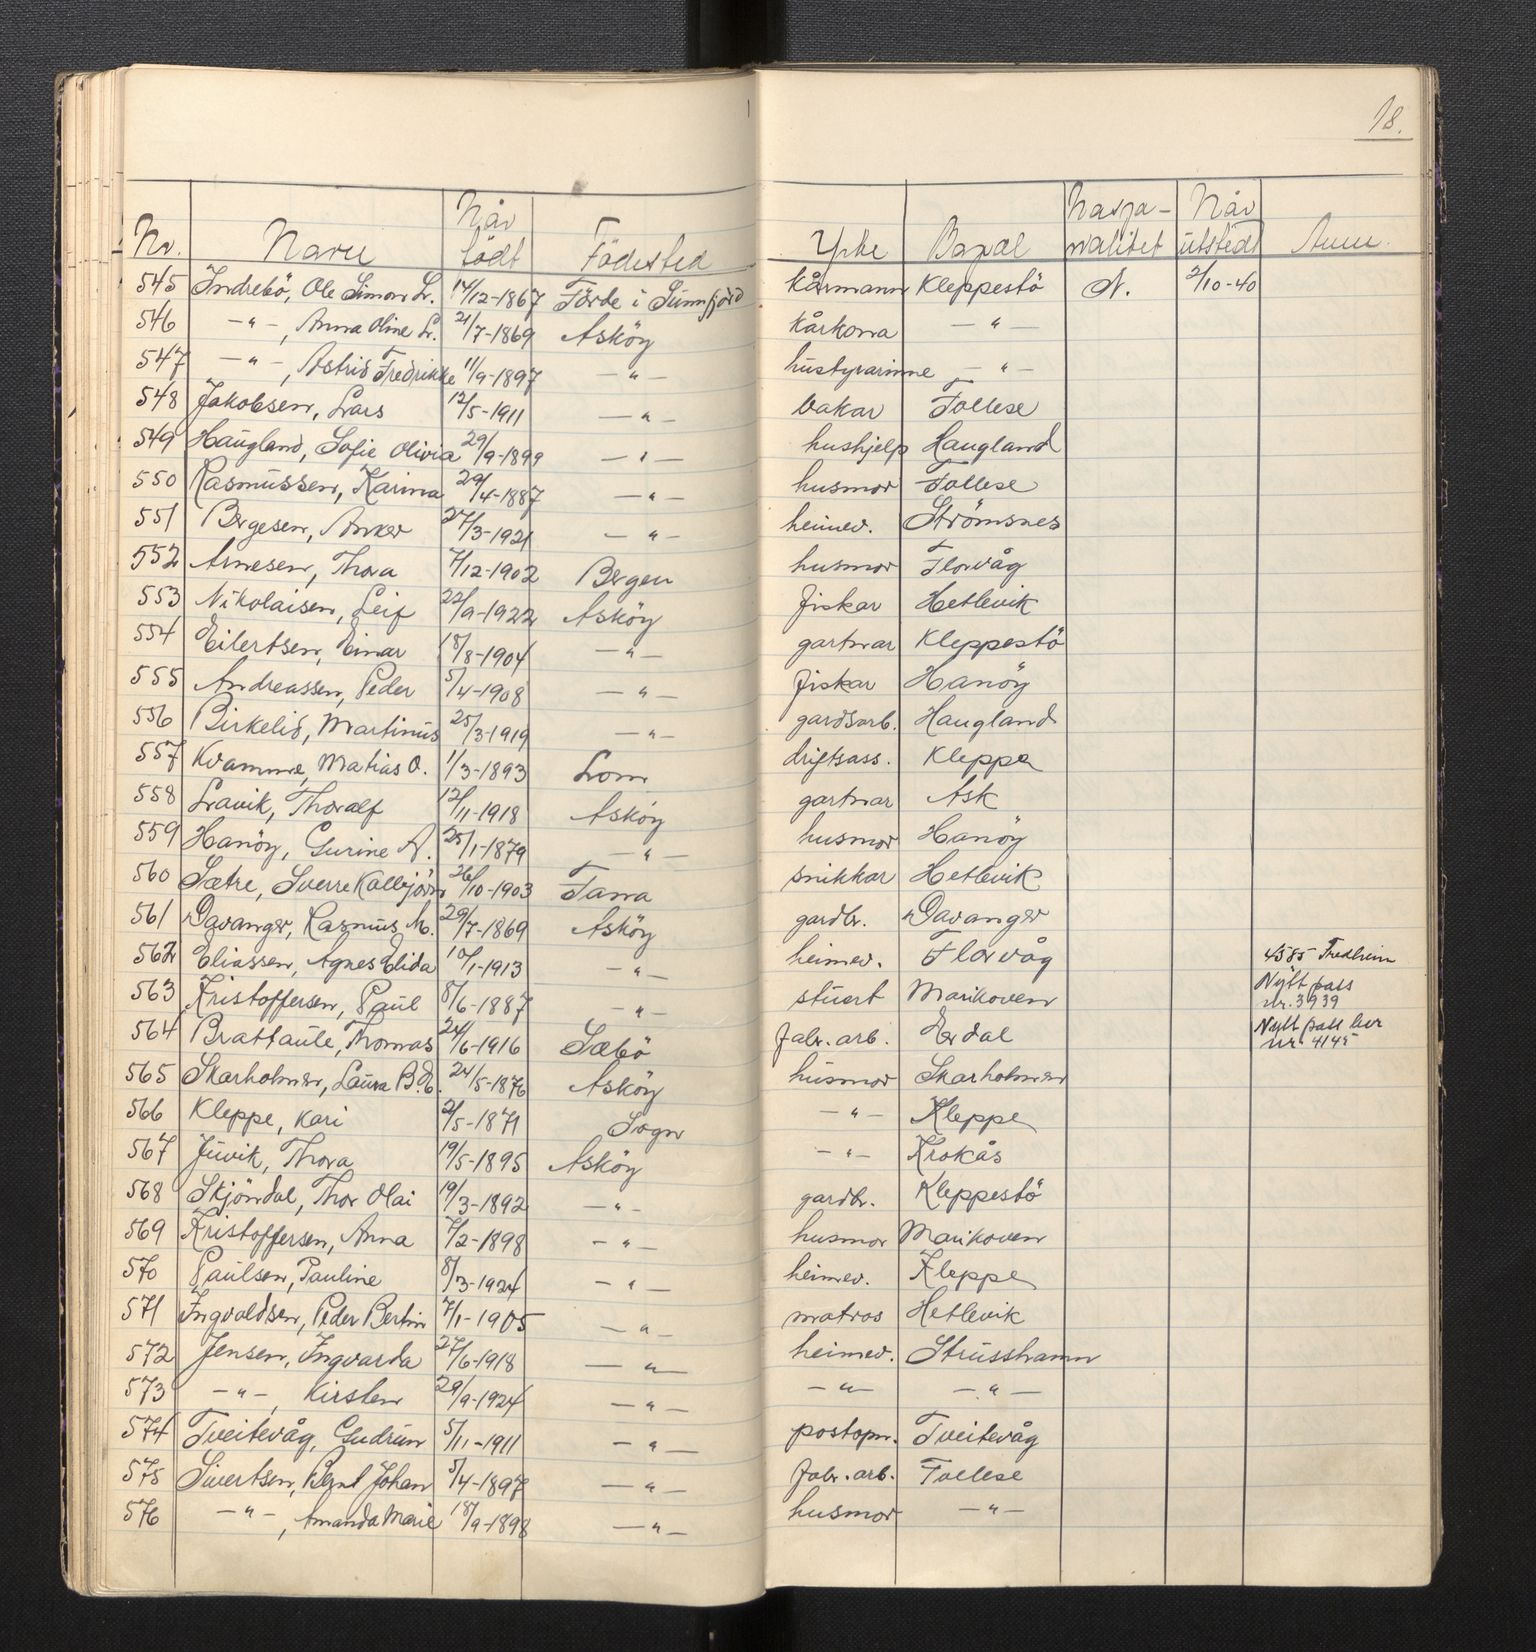 18.
Nr. Navn Når født Födested Yrke Bopæl Nasjonalitet Når utstedt Anm.
545 Indrebö, Ole Simon L. 14/12-1867 Förde i Sunnfjord kårmann Kleppestö N. 2/10-40
546 —"—, Anna Oline L. 21/7-1869 Asköy kårkona —"—
547 —"—, Astrid Fredrikke 11/9-1897 —"— hustyrarinne —"—
548 Jakobsen, Lars 12/5-1911 —"— bakar Follese
549 Haugland, Sofie Olivia 29/9-1899 —"— hushjelp Haugland
550 Rasmussen, Karina 29/4-1887 —"— husmor Follese
551 Bergesen, Anker 27/3-1921 —"— heimev. Strömsnes
552 Arnesen, Thora 7/12-1902 Bergen husmor Florvåg
553 Nikolaisen, Leif 22/9-1922 Asköy fiskar Hetlevik
554 Eilertsen, Einar 18/8-1904 —"— gartnar Kleppestö
555 Andreassen, Peder 5/4-1908 —"— fiskar Hanöy
556 Birkelid, Martinus 25/3-1919 —"— gardsarb. Haugland
557 Kvamme, Matias O. 1/3-1893 Lom driftsass. Kleppe
558 Lravik, Thoralf 12/11-1918 Asköy gartnar Ask
559 Hanöy, Gurine A. 25/1-1879 —"— husmor Hanöy
560 Sætre, Sverre Kolbjörn 26/10-1903 Tana snikkar Hetlevik
561 Davanger, Rasmus M. 29/7-1869 Asköy gardbr. Davanger
562 Eliassen, Agnes Elida 10/1-1913 —"— heimev. Florvåg 4585 Tredheim
563 Kristoffersen, Paul 8/6-1887 —"— stuert Marikoven Nytt pass nr. 3939
564 Brattaule, Thomas 24/6-1916 Sæbö fabr. arb. Erdal Nytt pass her nr 4145
565 Skarholmen, Laura B.E. 24/5-1876 Asköy husmor Skarholmen
566 Kleppe, Kari 2/5-1871 Sogn —"— Kleppe
567 Juvik, Thora 19/5-1895 Asköy —"— Krokås
568 Skjöndal, Thor Olai 19/3-1892 —"— gardbr. Kleppestö
569 Kristoffersen, Anna 7/2-1898 —"— husmor Marikoven
570 Paulsen, Pauline 8/3-1924 —"— heimev. Kleppe
571 Ingvaldsen, Peder Bertin 7/1-1905 —"— matros Hetlevik
572 Jensen, Ingvarda 27/6-1918 —"— heimev. Strusshamn
573 —"— Kirsten 29/9-1924 —"— —"— —"—
574 Tveitevåg, Gudrun 5/11-1911 —"— postopn. Tveitevåg
575 Sivertsen, Bernt Johan 5/4-1897 —"— fabr. arb. Follese
576 —"—, Amanda Marie 18/9-1898 —"— husmor —"—